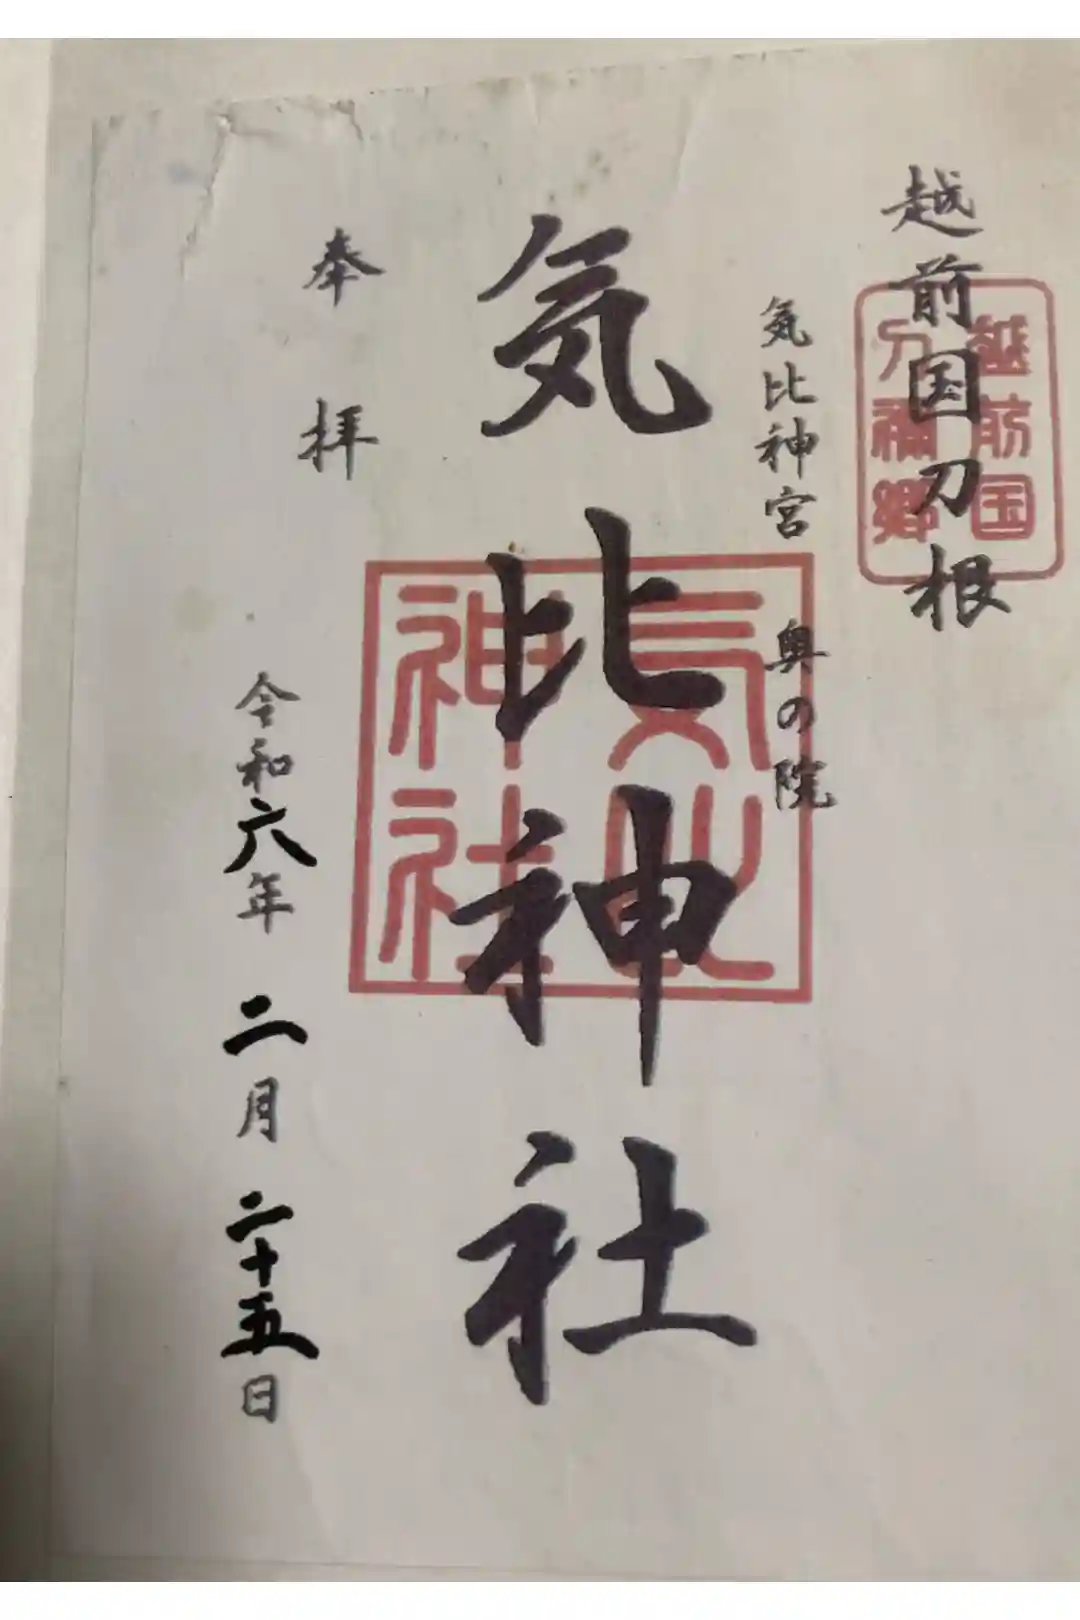 越前国刀根
越前国
刀祢郷
気比神宮 奥の院
気比神社
気比
神社
奉拝
令和六年 二月 二十五日